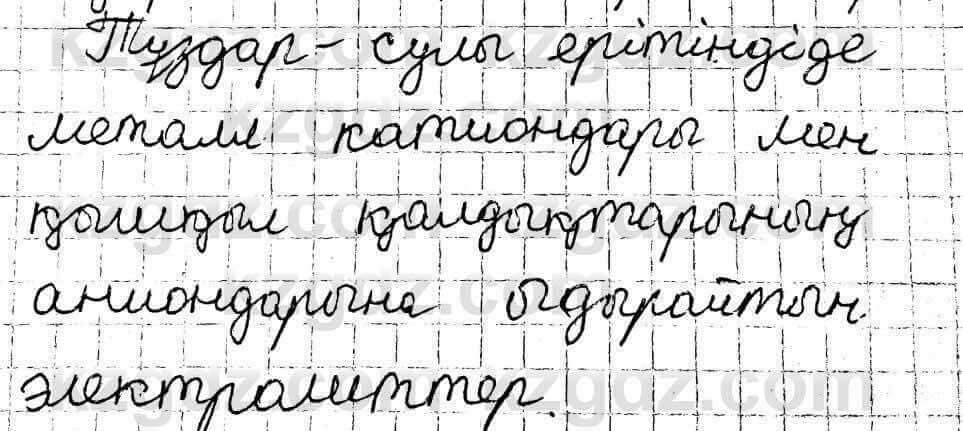 Тұздар - сулы ерітіндіде
металл катиондары мен
қышқыл қалдықтарының
аниондарына ыдырайтын
электралиттер.